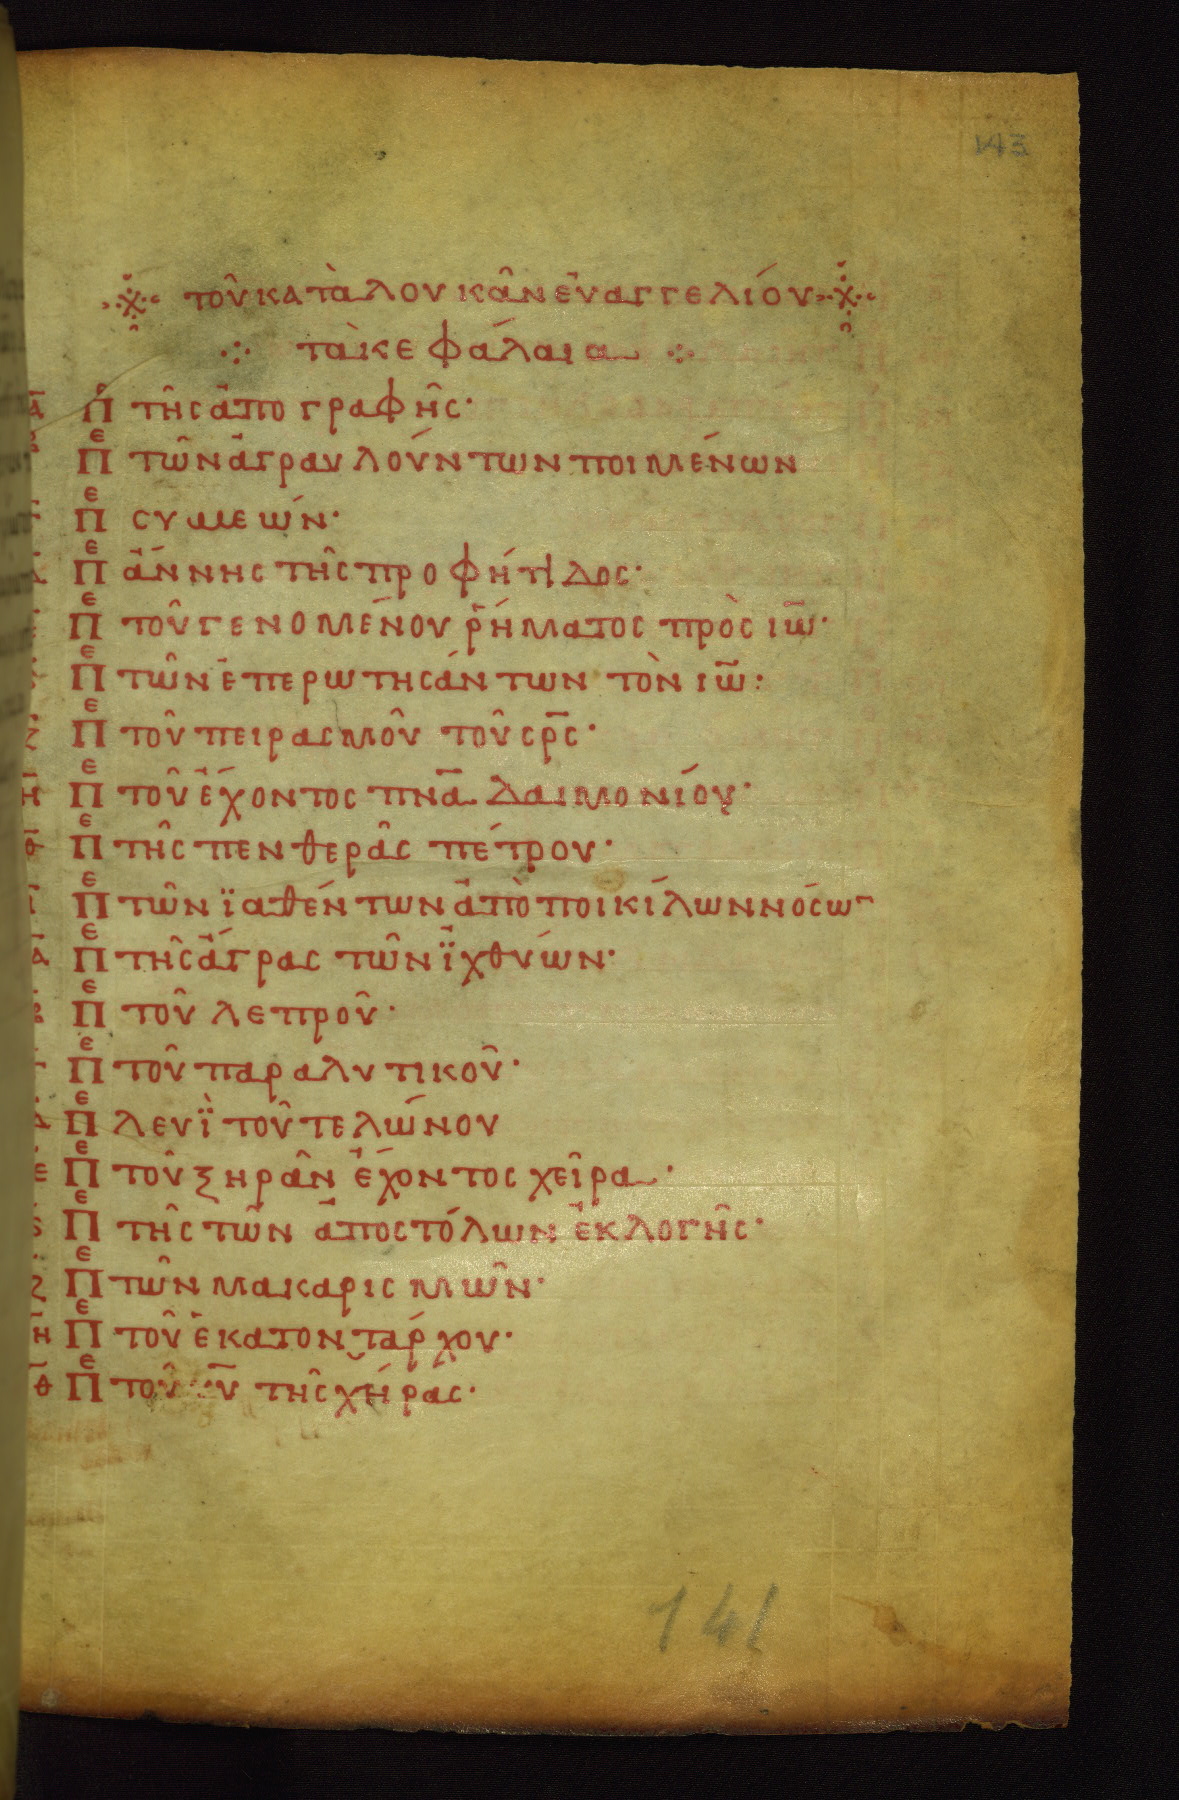 143
τοῦ κατὰ λουκᾶν εὐαγγελίου
τὰ κεφάλαια
Α Πε τῆς ἀπογραφῆς·
Πε τῶν ἀγραυλούντων ποιμένων
Πε συμεών·
Πε ἄννης τῆς προφήτιδος·
Πε τοῦ γενομένου ῥήματος πρὸς ιω̅·
Πε τῶν ἐπερωτησάντων τὸν ιω̅:
Ζ Πε τοῦ πειρασμοῦ τοῦ σρ̅ς·
Η Πε τοῦ ἔχοντος πνα̅ δαιμονίου·
Θ Πε τῆς πενθερᾶς πέτρου·
Ι Πε τῶν ϊαθέντων ἀπὸ ποικίλων νόσω̅
Α Πε τῆς ἄγρας τῶν ἰχθύων·
Β Πε τοῦ λεπροῦ·
Πε τοῦ παραλυτικοῦ·
Δ Πε λευῒ τοῦ τελώνου
Ε Πε τοῦ ξηρὰν ἔχοντος χεῖρα·
ς Πε τῆς τῶν ἀποστόλων ἐκλογῆς·
Ζ Πε τῶν μακαρισμῶν·
Η Πε τοῦ ἑκατοντάρχου·
Θ Πε τοῦ υ̅υ τῆς χήρας·
141